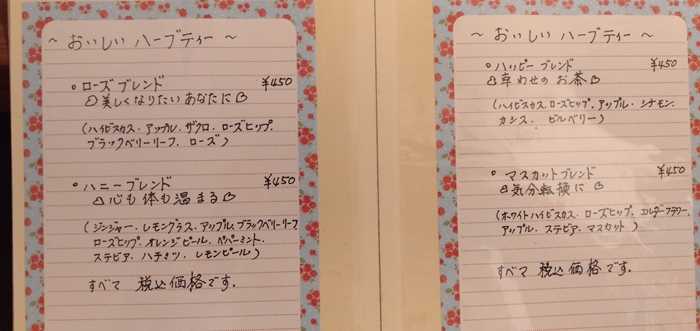 ～ おいしい ハーブティー ～
ローズ ブレンド ¥450
美しくなりたい あなたに
(ハイビスカス・アップル・ザクロ・ローズヒップ・
ブラックベリーリーフ、ローズ)
ハニーブレンド ¥450
心も 体も 温まる
(ジンジャー・レモングラス・アップル、ブラックベリーリーフ
ローズヒップ、オレンジピール、ペパーミント・
ステビア、ハチミツ、レモンピール)
すべて 税込価格です.
～ おいしい ハーブティー ～
ハッピー ブレンド ¥450
幸わせの お茶
(ハイビスカス、ローズヒップ、アップル・シナモン、
カシス、ビルベリー)
マスカットブレンド ¥450
気分転換に
(ホワイトハイビスカス・ローズヒップ、エルダーフラワー、
アップル、ステビア、マスカット)
すべて 税込価格です.